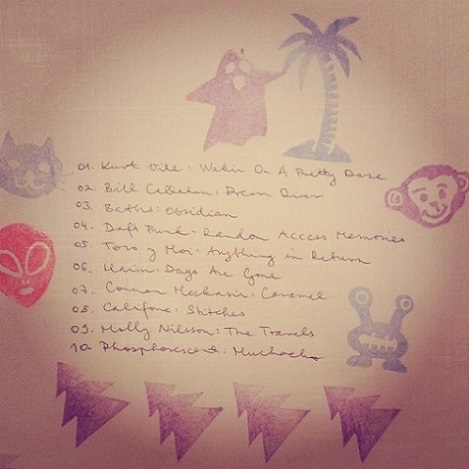 01. Kurt Vile: Wakin On A Pretty Daze
02. Bill Callahan: Dream River
03. Baths: Obsidian
04. Daft Punk: Random Access Memories
05. Toro y Moi: Anything in Return
06. Haim: Days Are Gone
07. Connan Mockasin: Caramel
08. Califone: Stitches
09. Molly Nilsson: The Travels
10. Phosphorescent: Muchacho